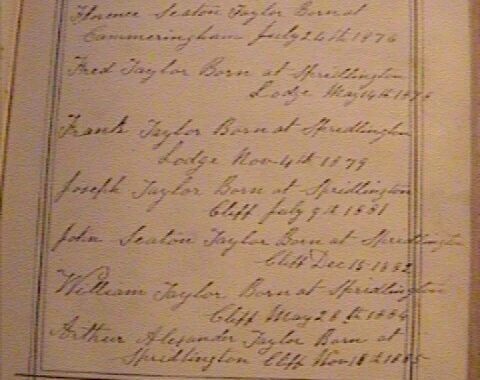 Florence Seaton Taylor Born at
Cammeringham July 24th 1876
Fred Taylor Born at Spridlington
Lodge May 14th 1878
Frank Taylor Born at Spridlington
Lodge Nov 4th 1879
Joseph Taylor Born at Spridlington
Cliff July 9th 1881
John Seaton Taylor Born at Spridlington
Cliff Dec 15 1882
William Taylor Born at Spridlington
Cliff May 28th 1884
Arthur Alexander Taylor Born at
Spridlington Cliff Nov 18th 1885